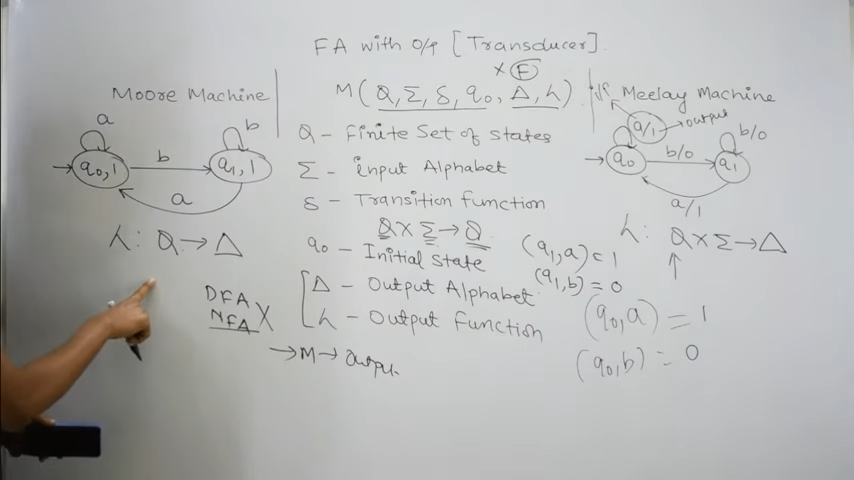 FA with o/p [Transducer].
× F
M(Q, Σ, δ, q0, Δ, λ)
Moore Machine
a
b
q0,1
b
q1,1
a
λ: Q → Δ
DFA
NFA X
Q - Finite Set of states
Σ - input Alphabet
δ - Transition function
Q × Σ → Q
q0 - Initial State
Δ - Output Alphabet
λ - Output Function
→ M → Output
Meelay Machine
i/p
a/1 → output
b/0
q0
b/0
q1
a/1
λ: Q × Σ → Δ
(q1, a) = 1
(q1, b) = 0
(q0, a) = 1
(q0, b) = 0